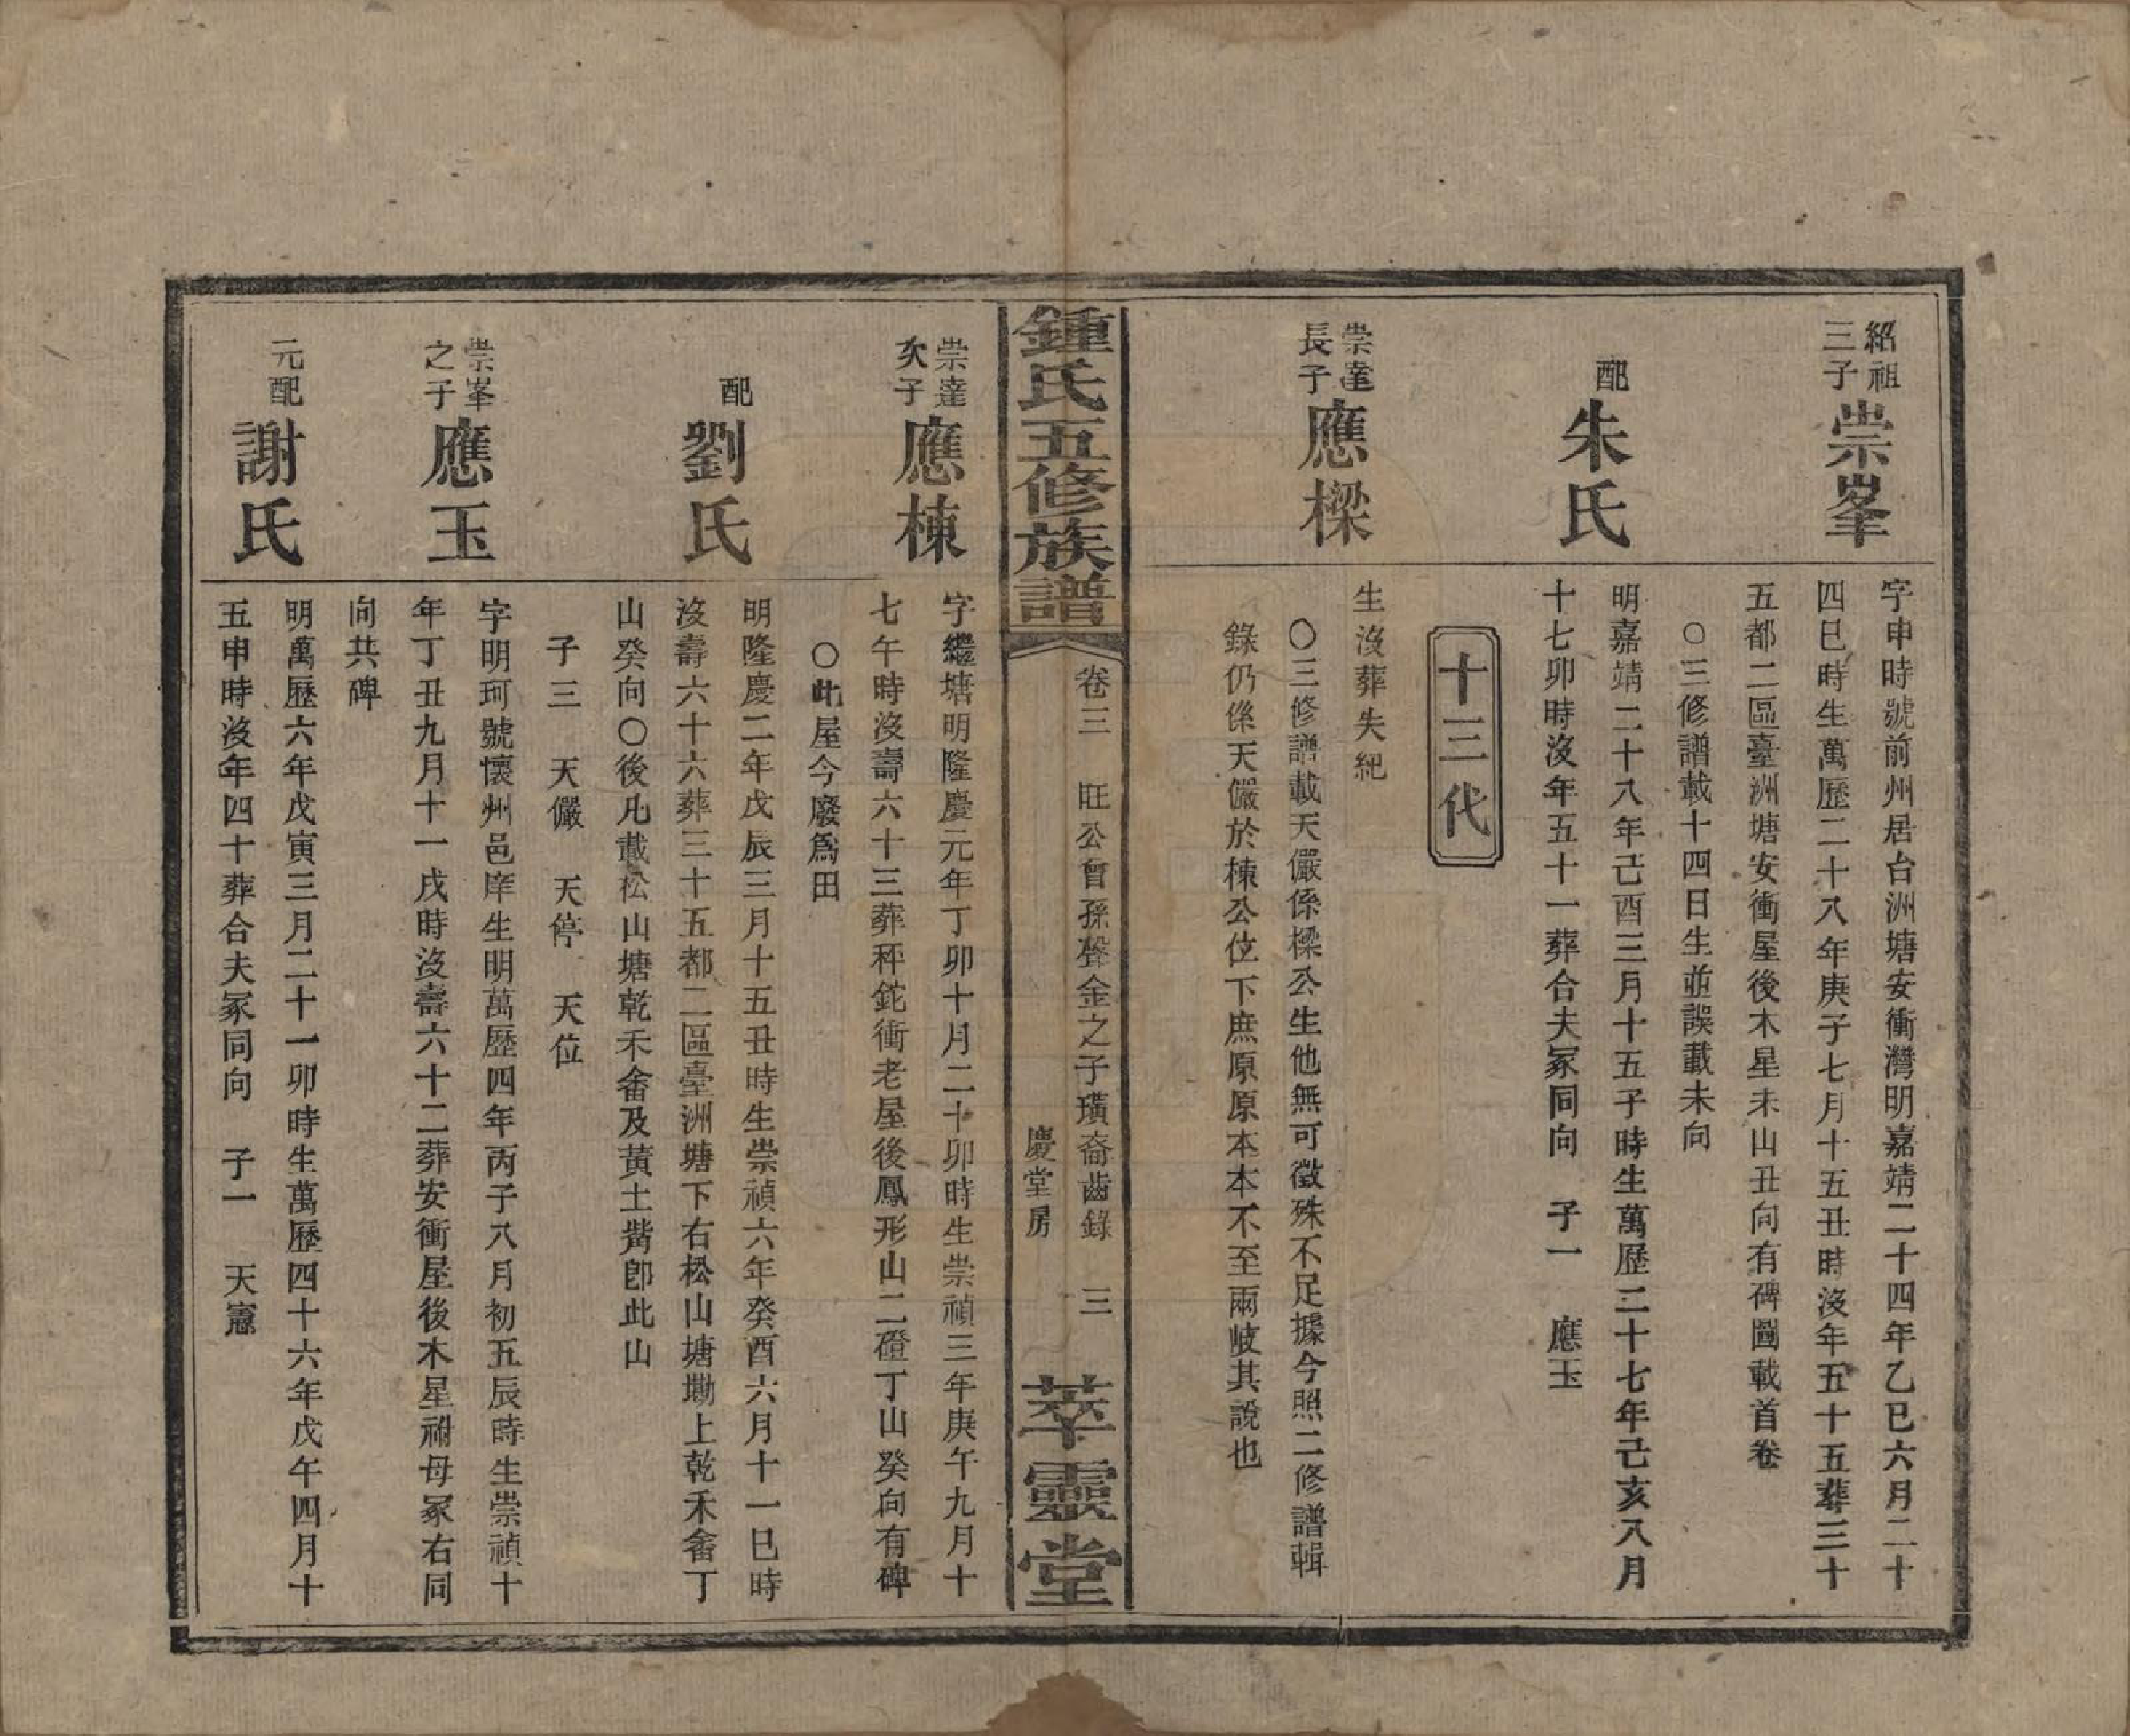 紹祖
三子
崇峯
字申時號前州居台洲塘安衝灣明嘉靖二十四年乙巳六月二十
四巳時生萬歷二十八年庚子七月十五丑時沒年五十五葬三十
五都二區臺洲塘安衝屋後木星未山丑向有碑圖載首卷
○三修譜載十四日生並誤載未向
配
朱氏
明嘉靖二十八年己酉三月十五子時生萬歷二十七年己亥八月
十七卯時沒年五十一葬合夫冢同向 子一 應玉
十三代
崇達
長子
應樑
生沒葬失紀
○三修譜載天儼係樑公生他無可徵殊不足據今照二修譜輯
錄仍係天儼於棟公位下庶原原本本不至兩岐其說也
鍾氏五修族譜
卷三 旺公曾孫聲金之子璜裔齒錄 三
慶堂房
萃靈堂
崇達
次子
應棟
字繼塘明隆慶元年丁卯十月二十卯時生崇禎三年庚午九月十
七午時沒壽六十三葬秤鉈衝老屋後鳳形山二磴丁山癸向有碑
○此屋今廢爲田
配
劉氏
明隆慶二年戊辰三月十五丑時生崇禎六年癸酉六月十一巳時
沒壽六十六葬三十五都二區臺洲塘下右松山塘墈上乾禾畬丁
山癸向○後凡載松山塘乾禾畬及黃土觜卽此山
子三 天儼 天停 天位
崇峯
之子
應玉
字明珂號懷州邑庠生明萬歷四年丙子八月初五辰時生崇禎十
年丁丑九月十一戌時沒壽六十二葬安衝屋後木星祔母冢右同
向共碑
元配
謝氏
明萬歷六年戊寅三月二十一卯時生萬歷四十六年戊午四月十
五申時沒年四十葬合夫冢同向 子一 天憲